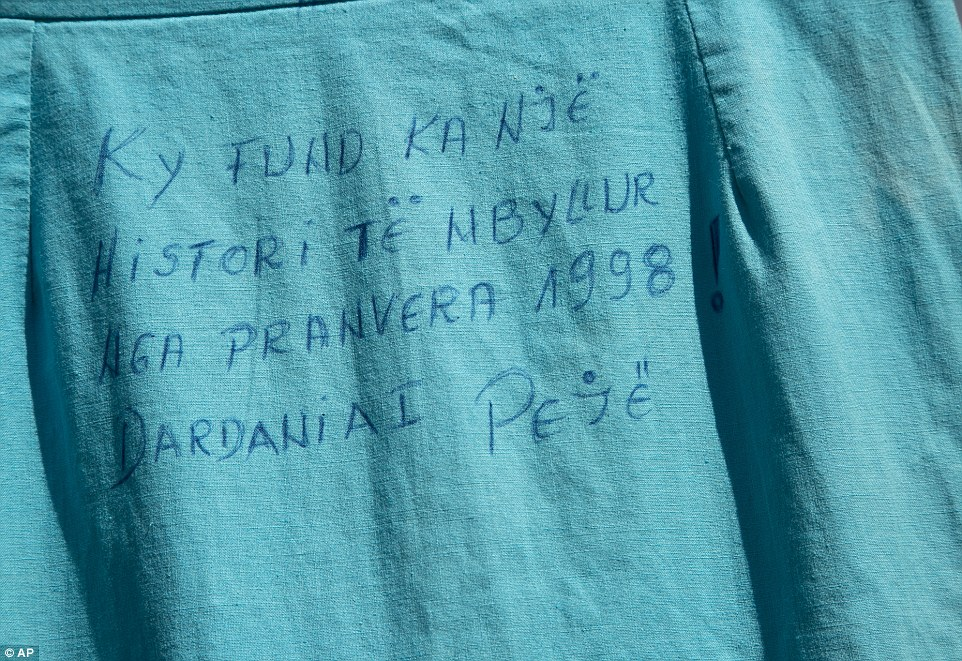 Ky FUND KA NJË
HiSTORi TË MBYLLUR
NGA PRANVERA 1998 !
DARDANiA I PEJË
© AP